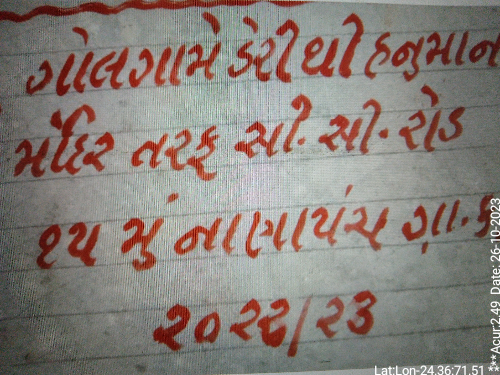 ગોલગામે ડેરીથી હનુમાન
મંદિર તરફ સી. સી. રોડ
૧૫ મું નાણાપંચ ગ્રા. ક
૨૦૨૨/૨૩
Lat:Lon-24.36:71.51
***Acur:2.49 Date: 26-10-2023